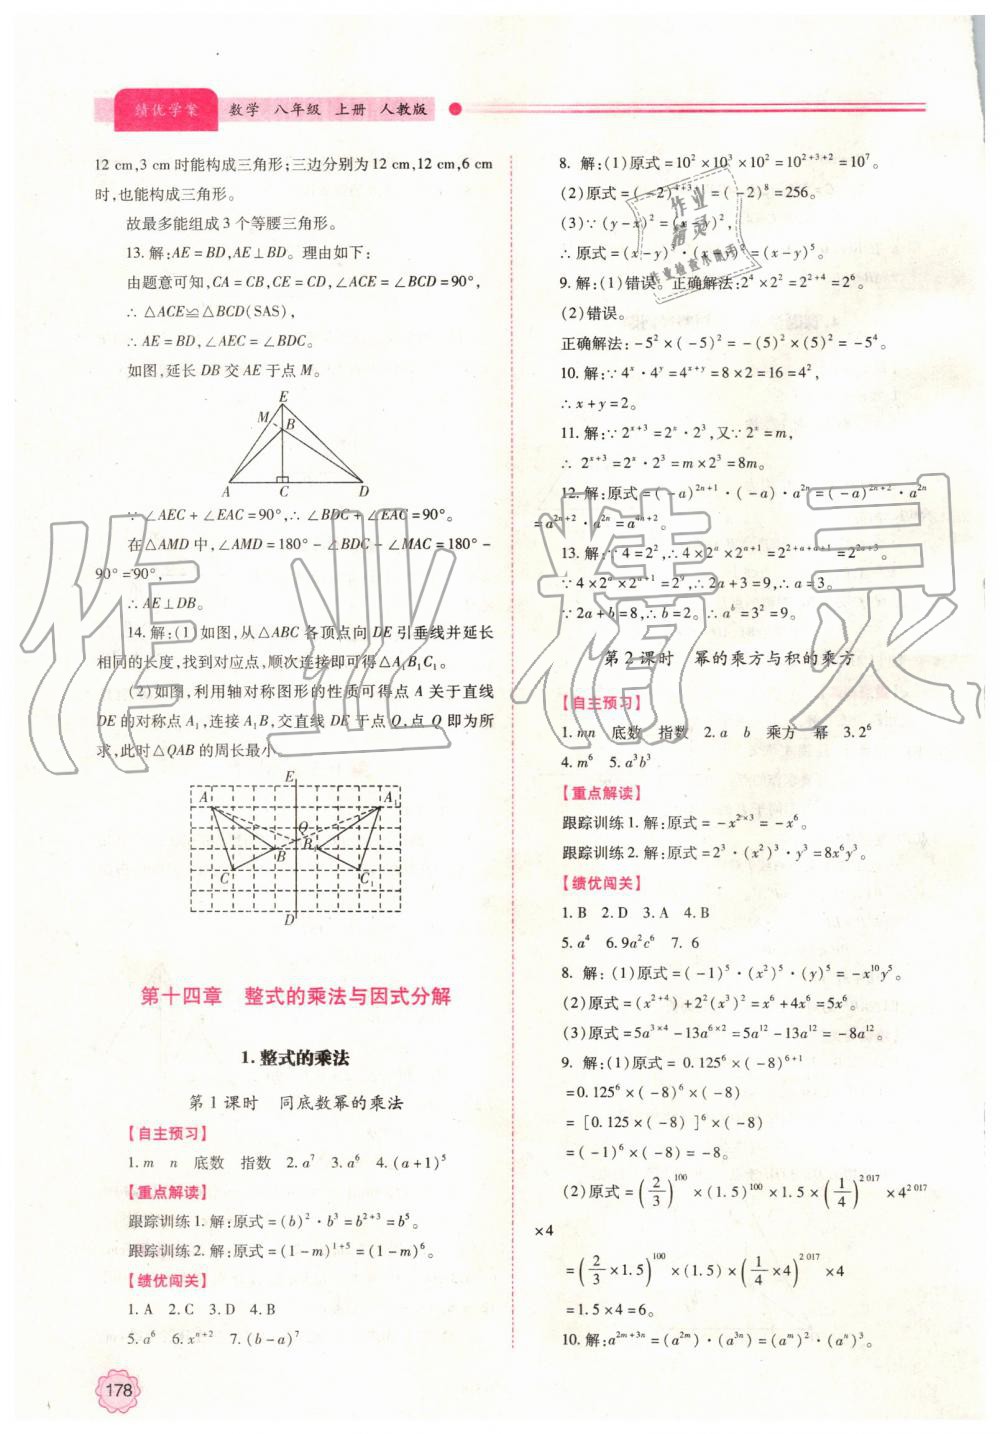 绩优学案 数学 八年级 上册 人教版
12 cm,3 cm 时能构成三角形;三边分别为 12 cm,12 cm,6 cm
时,也能构成三角形。
故最多能组成 3 个等腰三角形。
13. 解:AE=BD,AE⊥BD。理由如下:
由题意可知,CA=CB,CE=CD,∠ACE=∠BCD=90°,
∴△ACE≌△BCD(SAS),
∴AE=BD,∠AEC=∠BDC。
如图,延长 DB 交 AE 于点 M。
E
M
B
A C D
∵∠AEC+∠EAC=90°,∴∠BDC+∠EAC=90°。
在△AMD 中,∠AMD=180°-∠BDC-∠MAC=180°-
90°=90°,
∴AE⊥DB。
14. 解:(1)如图,从△ABC 各顶点向 DE 引垂线并延长
相同的长度,找到对应点,顺次连接即可得△A₁B₁C₁。
(2)如图,利用轴对称图形的性质可得点 A 关于直线
DE 的对称点 A₁,连接 A₁B,交直线 DE 于点 Q,点 Q 即为所
求,此时△QAB 的周长最小。
E
A A₁
Q
B B₁
C C₁
D
第十四章 整式的乘法与因式分解
1. 整式的乘法
第 1 课时 同底数幂的乘法
【自主预习】
1. m n 底数 指数 2. a⁷ 3. a⁶ 4. (a+1)⁵
【重点解读】
跟踪训练 1. 解:原式=(b)²·b³=b²⁺³=b⁵。
跟踪训练 2. 解:原式=(1-m)¹⁺⁵=(1-m)⁶。
【绩优闯关】
1. A 2. C 3. D 4. B
5. a⁶ 6. xⁿ⁺² 7. (b-a)⁷
178
8. 解:(1)原式=10²×10³×10²=10²⁺³⁺²=10⁷。
(2)原式=(-2)⁴⁺³⁺¹=(-2)⁸=256。
(3)∵(y-x)²=(x-y)²,
∴原式=(x-y)³·(x-y)²=(x-y)⁵。
9. 解:(1)错误。正确解法:2⁴×2²=2²⁺⁴=2⁶。
(2)错误。
正确解法:-5²×(-5)²=-(5)²×(5)²=-5⁴。
10. 解:∵4ˣ·4ʸ=4ˣ⁺ʸ=8×2=16=4²,
∴x+y=2。
11. 解:∵2ˣ⁺³=2ˣ·2³,又∵2ˣ=m,
∴2ˣ⁺³=2ˣ·2³=m×2³=8m。
12. 解:原式=(-a)²ⁿ⁺¹·(-a)·a²ⁿ=(-a)²ⁿ⁺²·a²ⁿ
=a²ⁿ⁺²·a²ⁿ=a⁴ⁿ⁺²。
13. 解:∵4=2²,∴4×2ᵃ×2ᵃ⁺¹=2²⁺ᵃ⁺ᵃ⁺¹=2²ᵃ⁺³。
∵4×2ᵃ×2ᵃ⁺¹=2⁹,∴2a+3=9,∴a=3。
∵2a+b=8,∴b=2。∴aᵇ=3²=9。
第 2 课时 幂的乘方与积的乘方
【自主预习】
1. mn 底数 指数 2. a b 乘方 幂 3. 2⁶
4. m⁶ 5. a³b³
【重点解读】
跟踪训练 1. 解:原式=-x²ˣ³=-x⁶。
跟踪训练 2. 解:原式=2³·(x²)³·y³=8x⁶y³。
【绩优闯关】
1. B 2. D 3. A 4. B
5. a⁴ 6. 9a²c⁶ 7. 6
8. 解:(1)原式=(-1)⁵·(x²)⁵·(y)⁵=-x¹⁰y⁵。
(2)原式=(x²⁺⁴)+2²(x³)²=x⁶+4x⁶=5x⁶。
(3)原式=5a³ˣ⁴-13a⁶ˣ²=5a¹²-13a¹²=-8a¹²。
9. 解:(1)原式=0.125⁶×(-8)⁶⁺¹
=0.125⁶×(-8)⁶×(-8)
=[0.125×(-8)]⁶×(-8)
=(-1)⁶×(-8)=-8。
(2)原式=(2/3)¹⁰⁰×(1.5)¹⁰⁰×1.5×(1/4)²⁰¹⁷×4²⁰¹⁷
×4
=(2/3×1.5)¹⁰⁰×(1.5)×(1/4×4)²⁰¹⁷×4
=1.5×4=6。
10. 解:a²ᵐ⁺³ⁿ=(a²ᵐ)·(a³ⁿ)=(aᵐ)²·(aⁿ)³。
作业精灵